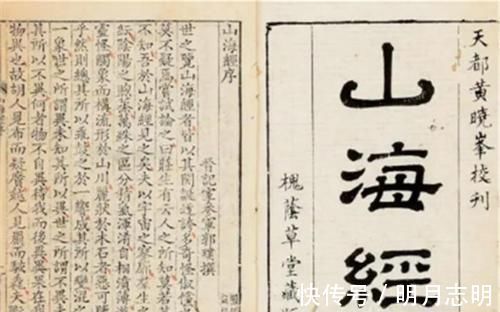 天都黃曉峯校刊
山海經
槐蔭草堂藏
山海經序
晉記室參軍郭璞撰
世之覽山海經者皆以其閎誕迂誇多奇怪俶儻
莫不疑焉嘗試論之曰莊生有云人之所知莫若其
不知吾於山海經見之矣夫以宇宙之寥廓羣生之
紜陰陽之煦蒸萬殊之區分精氣渾淆自相濆薄遊
靈怪觸象而構流形於山川麗狀於木石者惡可
乎然則總其所以乖鼓之於一響成其所以變混之
一象世之所謂異未知其所以異世之所謂不異
其所以不異何者物不自異待我而後異異果在
物異也故胡人見布而疑黂越人見罽而駭毳夫
快传号/明月志明